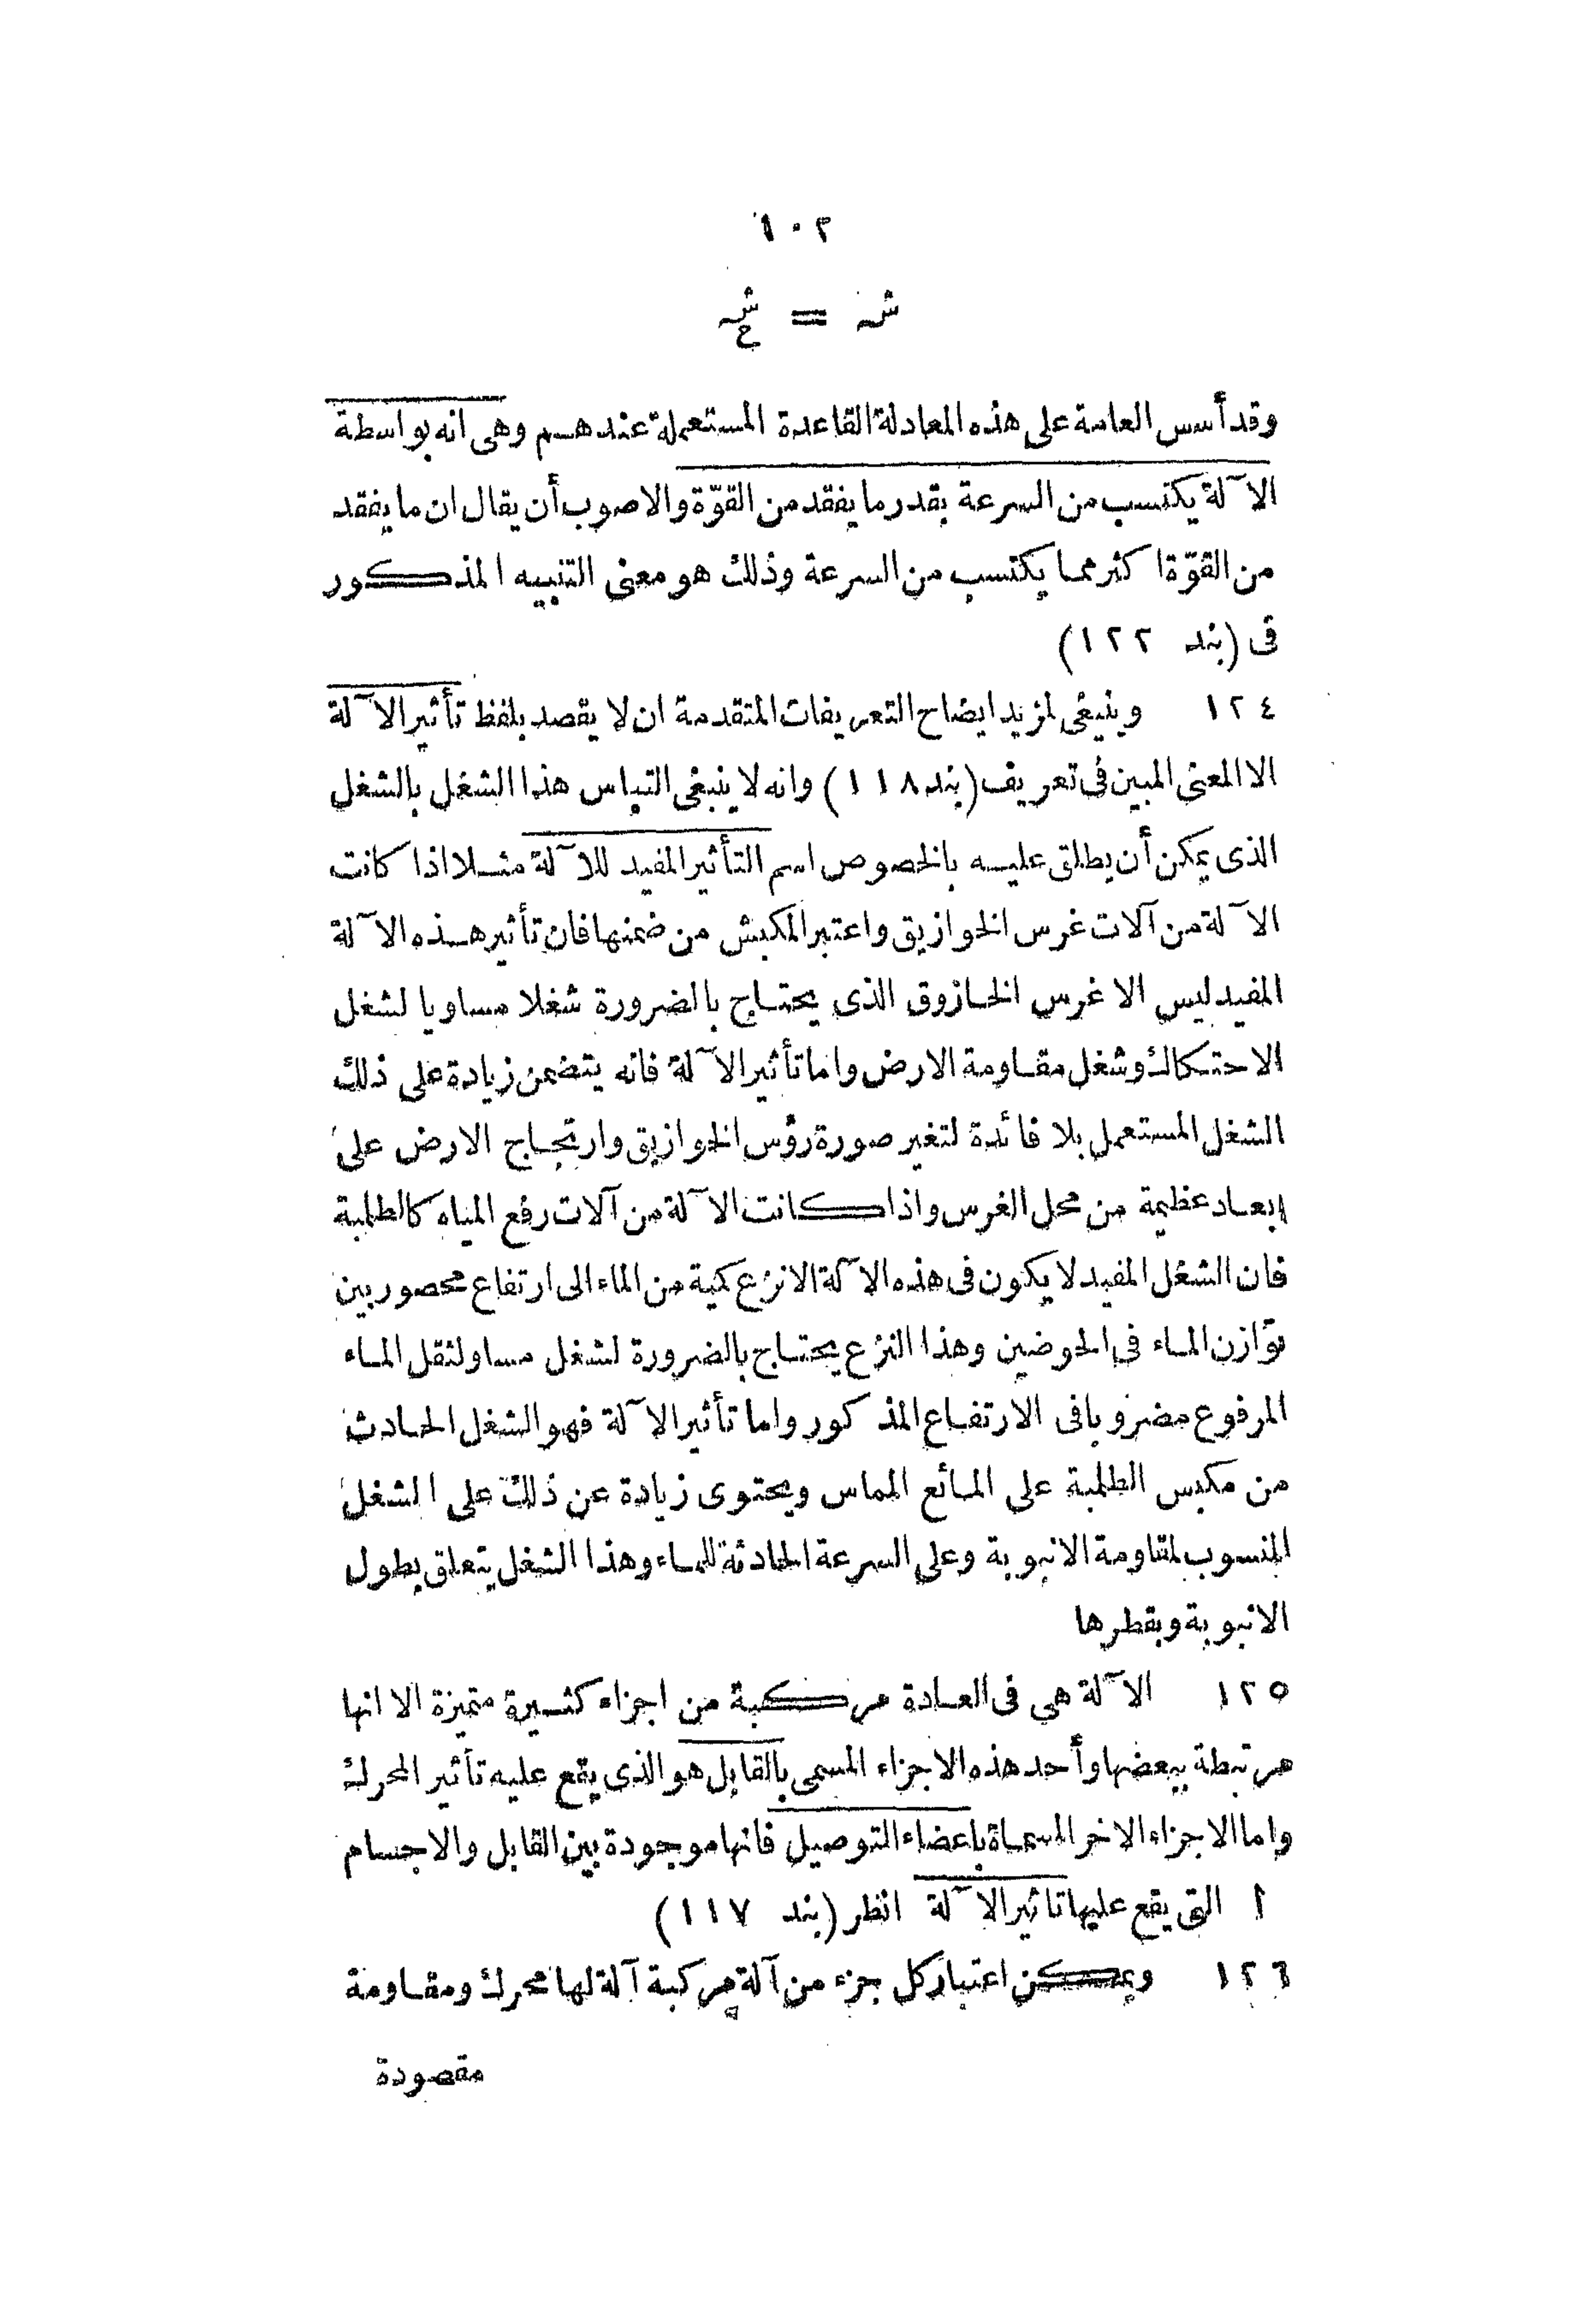 ١٠٢
شـ = شـ ح
وقد أسس العامة على هذه المعادلة القاعدة المستعملة عندهم وهى انه بواسطة
الآلة يكتسب من السرعة بقدر ما يفقد من القوّة والاصوب أن يقال ان ما يفقد
من القوّة اكثر مما يكتسب من السرعة وذلك هو معنى التنبيه المذكور
فى (بند ١٢٢)
١٢٤ وينبغى لمزيد ايضاح التعريفات المتقدمة ان لا يقصد بلفظ تأثير الآلة
الا المعنى المبين فى تعريف (بند ١١٨) وانه لا ينبغى التباس هذا الشغل بالشغل
الذى يمكن أن يطلق عليه بالخصوص اسم التأثير المفيد للآلة مثلا اذا كانت
الآلة من آلات غرس الخوازيق واعتبر المكبش من ضمنها فان تأثير هذه الآلة
المفيد ليس الا غرس الخازوق الذى يحتاج بالضرورة شغلا مساويا لشغل
الاحتكاك وشغل مقاومة الارض واما تأثير الآلة فانه يتضمن زيادة على ذلك
الشغل المستعمل بلا فائدة لتغير صورة رؤس الخوازيق وارتجاج الارض على
ابعاد عظيمة من محل الغرس واذا كانت الآلة من آلات رفع المياه كالطلمبة
فان الشغل المفيد لا يكون فى هذه الآلة الا نزع كمية من الماء الى ارتفاع محصور بين
توازن الماء فى الحوضين وهذا النزع يحتاج بالضرورة لشغل مساو لثقل الماء
المرفوع مضروبا فى الارتفاع المذكور واما تأثير الآلة فهو الشغل الحادث
من مكبس الطلمبة على المائع المماس ويحتوى زيادة عن ذلك على الشغل
المنسوب لمقاومة الانبوبة وعلى السرعة الحادثة للماء وهذا الشغل يتعلق بطول
الانبوبة وبقطرها
١٢٥ الآلة هى فى العادة مركبة من اجزاء كثيرة متميزة الا انها
مرتبطة ببعضها وأحد هذه الاجزاء المسمى بالقابل هو الذى يقع عليه تأثير المحرك
واما الاجزاء الاخر المسماة باعضاء التوصيل فانها موجودة بين القابل والاجسام
ا التى يقع عليها تاثير الآلة انظر (بند ١١٧)
١٢٦ ويمكن اعتبار كل جزء من آلة مركبة آلة لها محرك ومقاومة
مقصودة